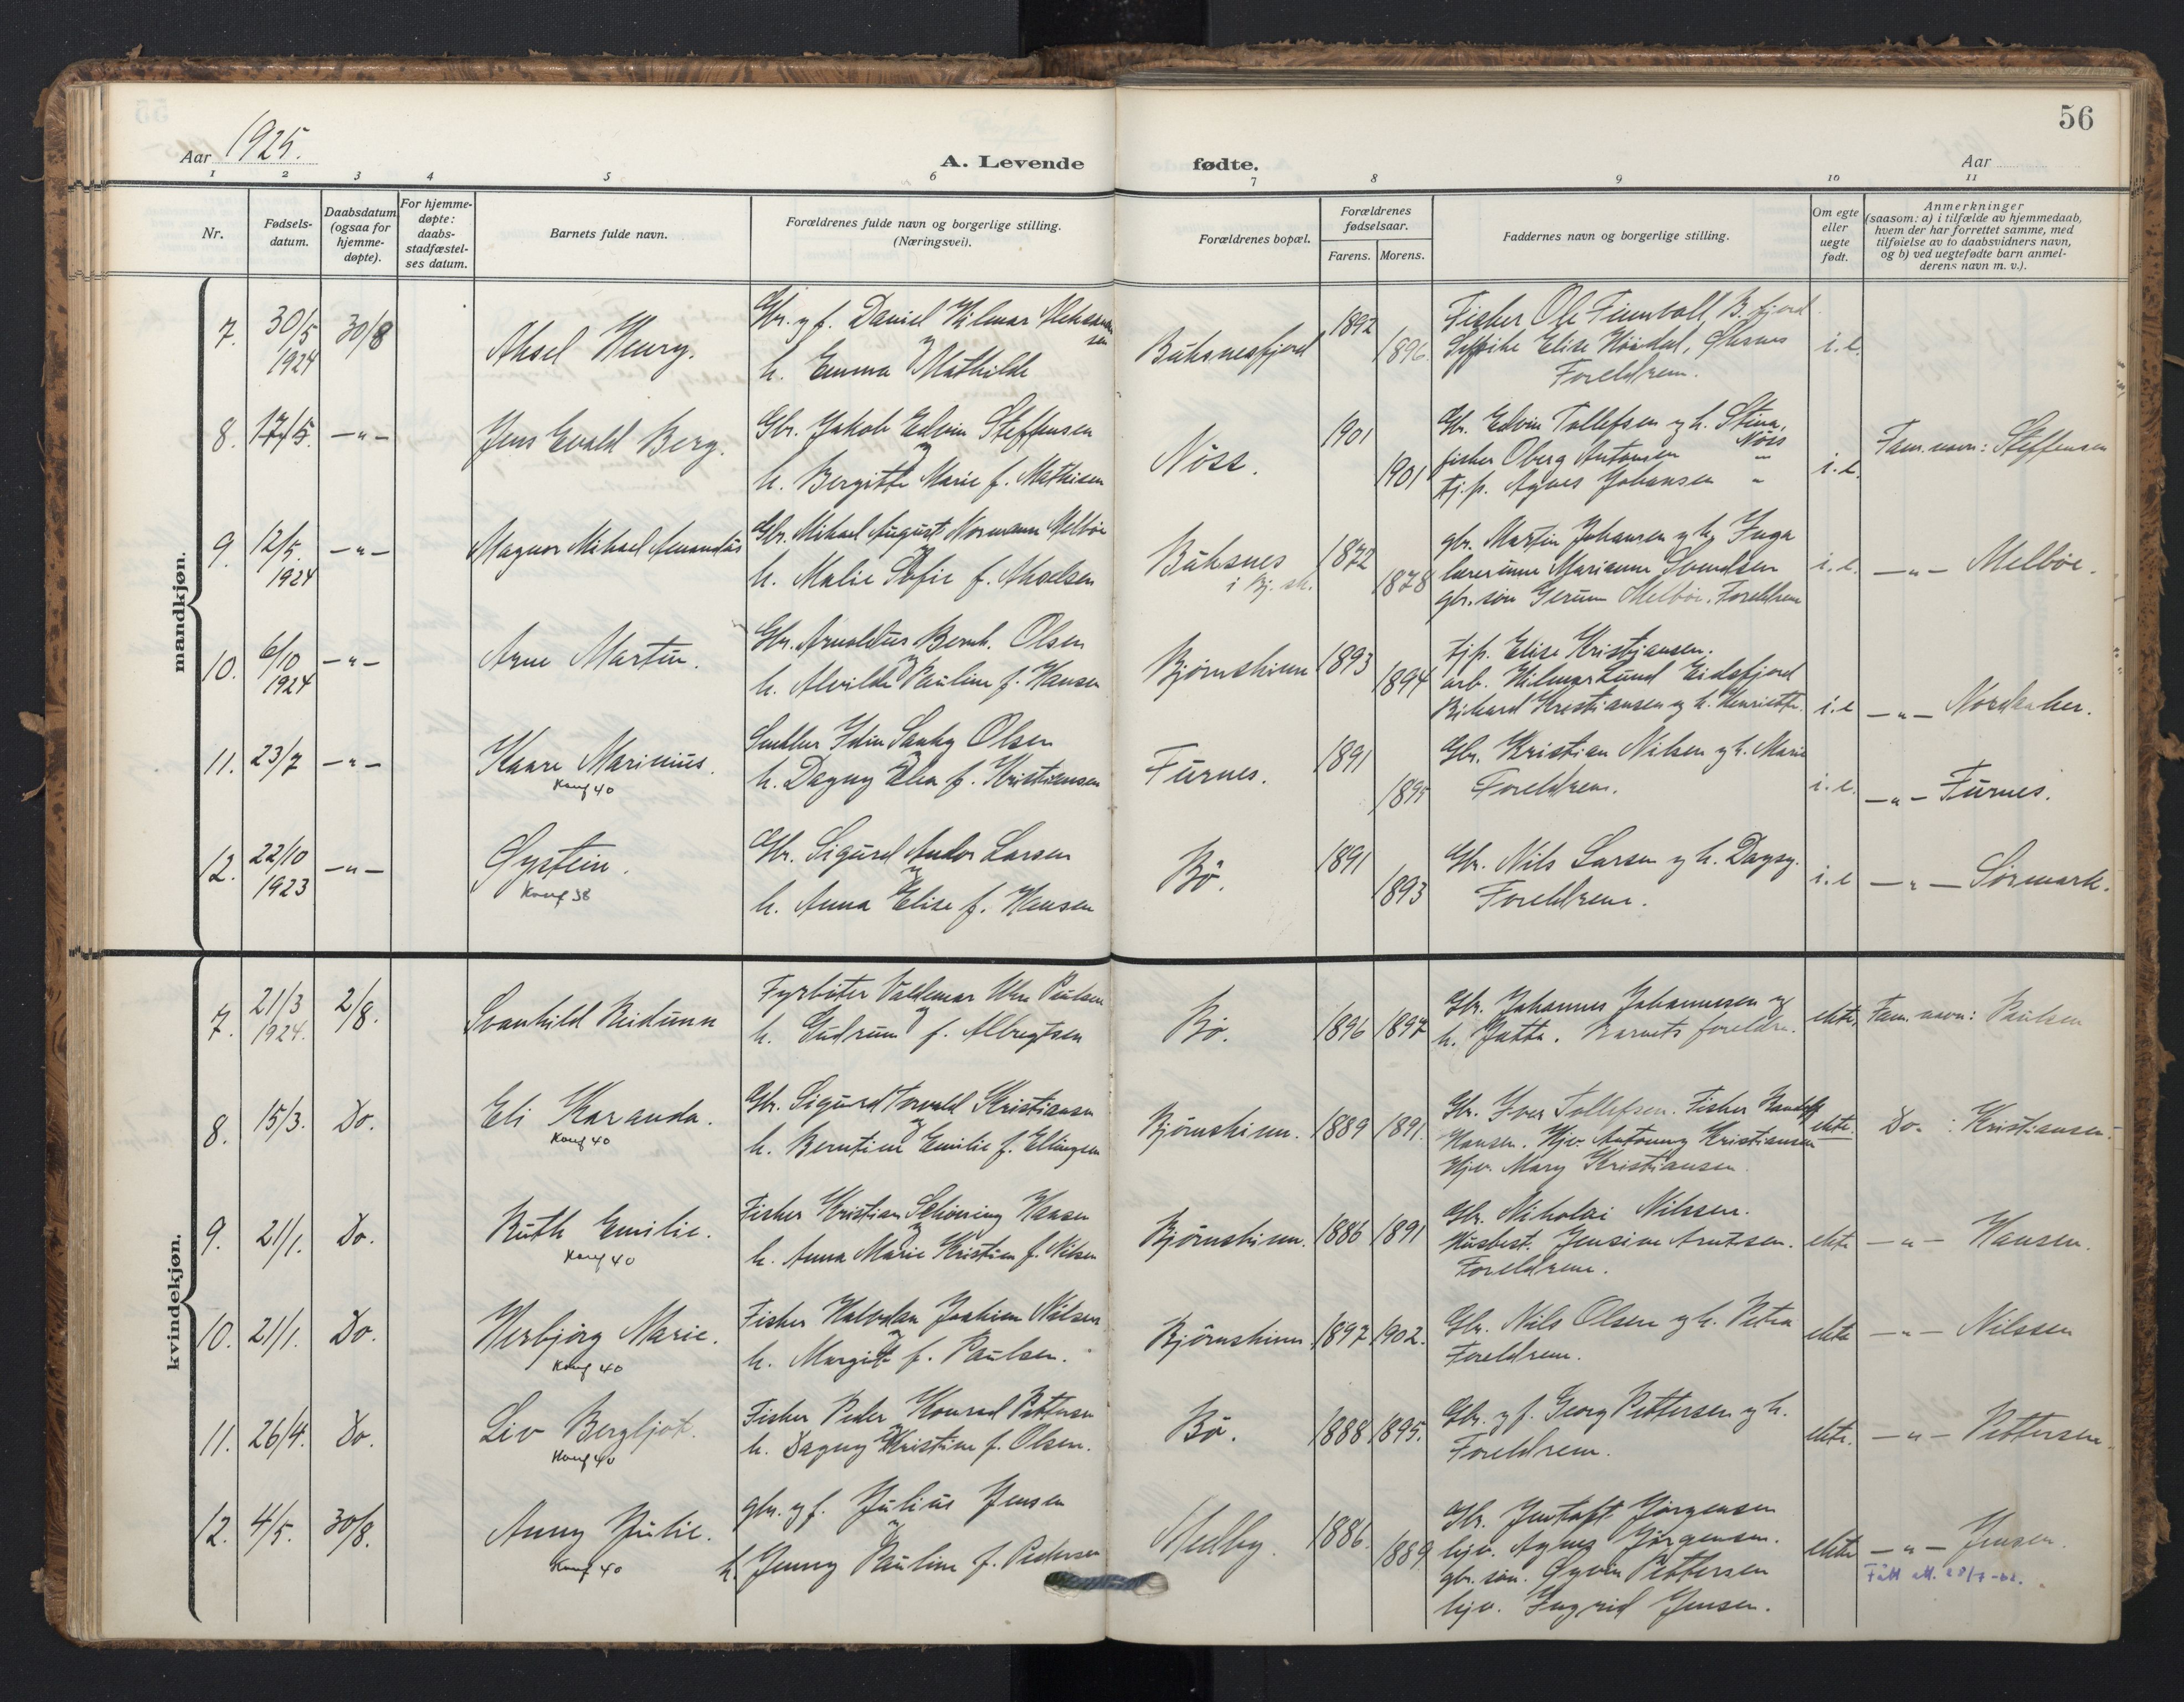 56
Aar 1925.
A. Levende fødte.
Aar
1 2 3 4 5 6 7 8 9 10 11
Nr.
Fødsels-
datum.
Daabsdatum
(ogsaa for
hjemme-
døpte).
For hjemme-
døpte:
daabs-
stadfæstel-
ses datum.
Barnets fulde navn.
Forældrenes fulde navn og borgerlige stilling.
(Næringsvei).
Forældrenes bopæl.
Forældrenes
fødselsaar.
Farens. Morens.
Faddernes navn og borgerlige stilling.
Om egte
eller
uegte
født.
Anmerkninger
(saasom: a) i tilfælde av hjemmedaab,
hvem der har forrettet samme, med
tilføielse av to daabsvidners navn,
og b) ved uegtefødte barn anmel-
derens navn m. v.).
mandkjøn.
7. 30/5 1924 30/8
Aksel Henry.
Gbr. og f. Daniel Hilmar
h. Emma Mathilde
Buksnesfjord 1892 1896.
Fisker Ole B.fjord
Elise
Foreldrene.
i.e.
8. 17/5. —"—
Jens Evald Berg.
Gbr. Jakob Edvin Steffensen
og
h. Bergitte Marie f. Mathisen
Nöss. 1901 1901
Gbr. Edvin Tollefsen og h. Stina, Nöss
fisker Oberg Antonsen "
tj.p. Agnes Johansen "
i.e.
Fam.navn: Steffensen
9. 12/5. 1924 —"—
Magnor Mikael Amandus
Gbr. Mikael August Normann Melböe
h. Malie Sofie f. Akselsen
Buksnes
i Bj. sk.
1872 1878
gbr. Martin Johansen og h. Inga
lærerinne Marianne Svendsen
gbr.sön Melböe. Foreldrene
i.e. —"— Melböe.
10. 6/10 1924 —"—
Arne Martin.
Gbr. Arnoldus Bernh. Olsen
og
h. Alvilde Pauline f. Hansen
Björnskinn 1893 1894
tj.p. Elise Kristiansen.
arb. Hilmar Lund Eidsfjord
Rikard Kristiansen og h. Henriette.
i.e —"—
11. 23/7 —"—
Kaare Marinius.
Konf 40
Olsen
h. Dagny f. Kristiansen
Furnes. 1891 1895
Gbr. Kristian Nilsen og h. Marie
Foreldrene.
i.e. —"— Furnes.
12. 22/10 1923 —"—
Öystein.
Konf 38
Gbr. Sigurd Andor Larsen
og
h. Anna Elise f. Hansen
Bö. 1891 1893
Gbr. Nils Larsen og h. Dagny.
Foreldrene.
i.e —"— Sörmark.
kvindekjøn.
7. 21/3 1924. 2/8.
Svanhild Reidunn
Fyrböter Valdemar Paulsen
og
h. Gudrun f. Albrigtsen
Bö. 1896 1897
Gbr. Johannes Johannessen og
h. Jutta. Barnets foreldre.
ekte. Fam.navn: Paulsen
8. 15/3. Do.
Eli Karanda.
Konf 40
Gbr. Sigurd Torvald Kristiansen
og
h. Berntine Emilie f. Ellingsen
Björnskinn. 1889 1891.
Gbr. Iver Tollefsen. Fisker
Hansen. Hjv. Kristiansen
Hjv. Mary Kristiansen.
ekte. Do. : Kristiansen.
9. 21/1. Do.
Ruth Emilie.
Konf 40
Fisker Kristian Schöning Hansen
og
h. Anna Marie Kristine f. Nilsen
Björnskinn. 1886 1891
Gbr. Nikolai Nilssen.
Husbest. Jensine Arntsen.
Foreldrene.
ekte —"— Hansen.
10. 21/1. Do.
Herbjörg Marie.
Konf 40
Fisker Halvdan Joakim Nilsen
og
h. Margit f. Paulsen.
Björnskinn 1897 1902.
Gbr. Nils Olsen og h. Petra
Foreldrene.
ekte —"— Nilssen
11. 26/4. Do.
Liv Bergljot.
Konf 40
Fisker Peder Konrad Pettersen
og
h. Dagny Kristine f. Olsen.
Bö. 1888 1895.
Gbr. og f. Georg Pettersen og h.
Foreldrene.
ekte. —"— Pettersen.
12. 4/5. 30/8.
Anny Julie.
Konf 40
gbr. og f. Julius Jensen
og
h. Jenny Pauline f. Pedersen
Medby. 1886. 1889
Gbr. Jörgensen
hjv. Agnes Jörgensen.
gbr. sön. Öyvin Pettersen
hjv. Ingrid Jensen.
ekte —"— Jensen.
Fått att.